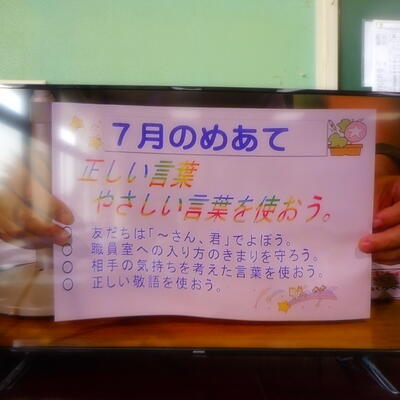 7月のめあて
正しい言葉
やさしい言葉を使おう。
○ 友だちは「～さん、君」でよぼう。
○ 職員室への入り方のきまりを守ろう。
○ 相手の気持ちを考えた言葉を使おう。
○ 正しい敬語を使おう。